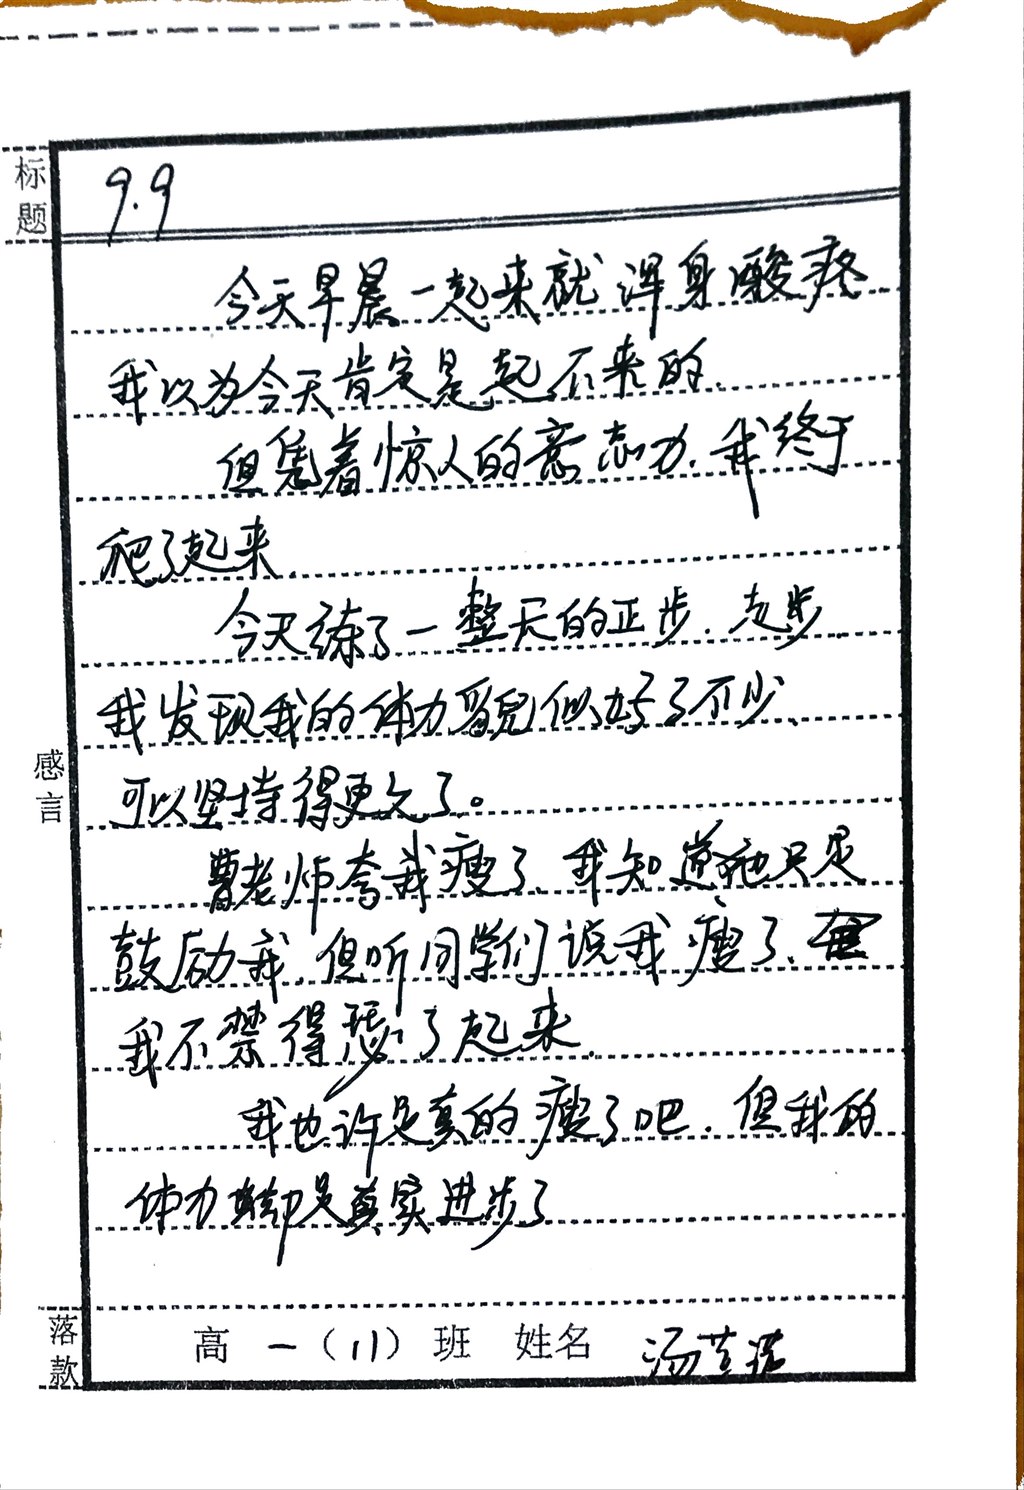 标题
9.9
今天早晨一起来就浑身酸疼
我以为今天肯定是起不来的.
但凭着惊人的意志力.我终于
爬了起来.
今天练了一整天的正步.走步.
我发现我的体力貌似好了不少、
可以坚持得更久了。
感言
曹老师夸我瘦了、我知道他只是
鼓励我.但听同学们说我瘦了、
我不禁得瑟了起来.
我也许是真的瘦了吧.但我的
体力却是真实进步了
落款
高一(11)班 姓名 汤